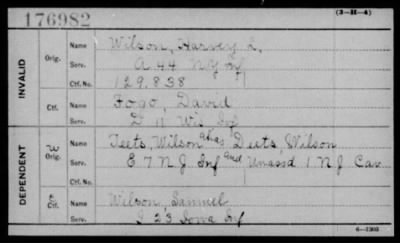 176982
(3-H-4)
INVALID
Orig.
Name Wilson, Harvey L.
Serv. A 44 N Y Inf
Ctf. No. 129.838
Ctf.
Name Fogo, David
Serv. D 11 Wis Inf
DEPENDENT
W Orig.
Name Teets, Wilson alias Deets, Wilson
Serv. E 7 N J Inf and Unassd 1 N J Cav
Ctf. No.
Ctf.
Name Wilson, Samuel
Serv. I 23 Iowa Inf